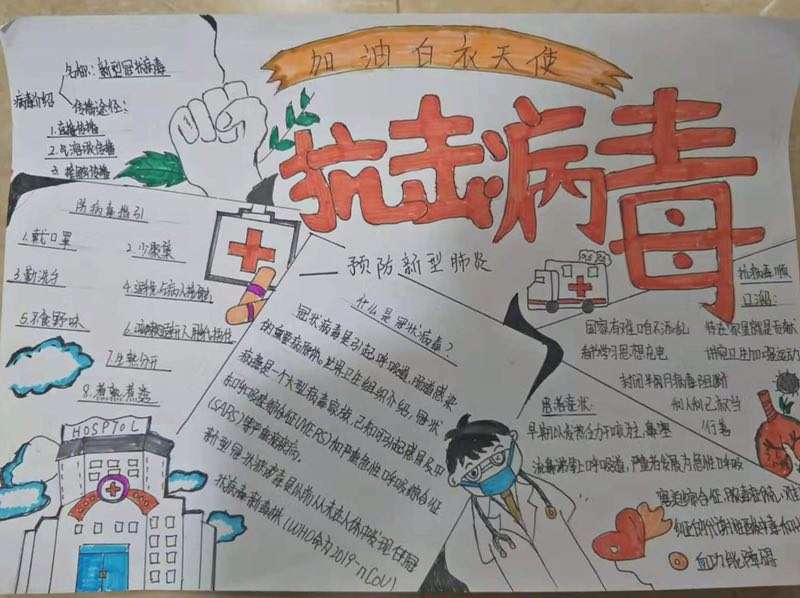 加油白衣天使
抗击病毒
预防新型肺炎
病毒介绍
名称：新型冠状病毒
传播途径：
1.直播传播
2.气溶液传播
3.接触传播
防病毒指引
1.戴口罩
2.少聚集
3.勤洗手
4.避免与病人接触
5.不食野味
7.生熟分开
8.煮熟煮透
HOSPTOL
什么是冠状病毒？
冠状病毒是引起呼吸道、肠道感染
的重要病原体。世界卫生组织介绍，冠状
病毒是一个大型病毒家族，已知可引起感冒及中
东呼吸综合征(MERS)和严重急性呼吸综合征
(SARS)等严重疾病。
新型冠状病毒是以前从未在人体中发现的冠
状病毒新毒株(WHO命为2019-nCoV)
抗病毒顺
口溜：
国家有难咱不添乱
待在家里就是贡献
看书学习思想充电
讲究卫生加强运动
封闭半月病毒阻断
利人利己就当
行善
患者症状：
早期以发热乏力干咳为主，鼻塞
流鼻涕等上呼吸道，严重者发展为急性呼吸
窘迫综合征、脓毒症休克、难
纠正的代谢性酸中毒和
血功能障碍